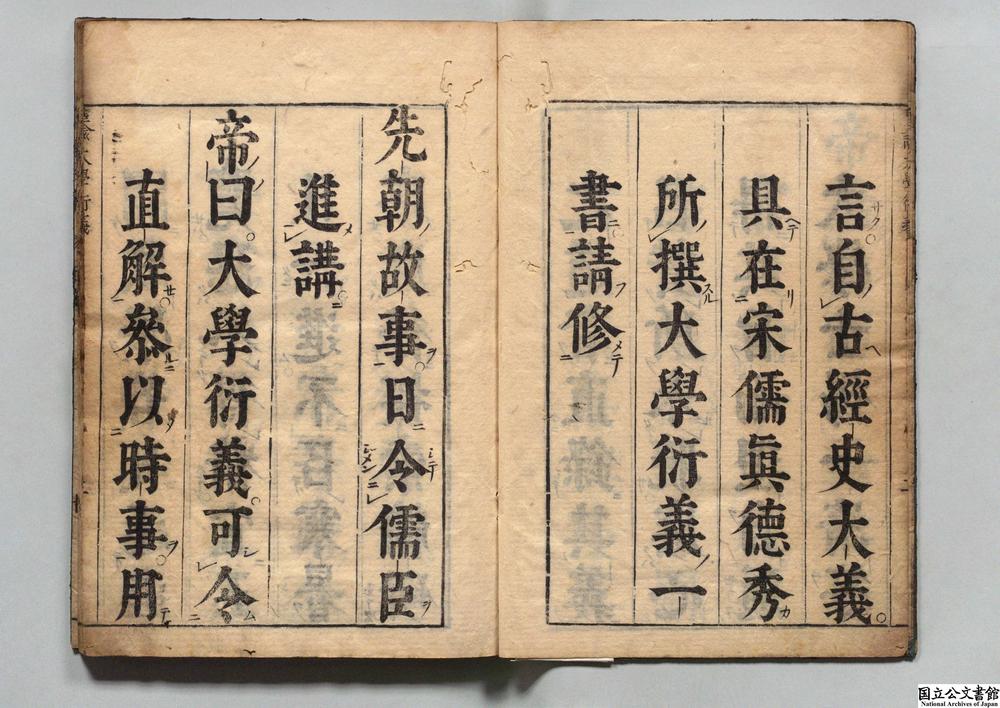 言自古經史大義
具在宋儒眞德秀
所撰大學衍義一
書請修
先朝故事日令儒臣
進講
帝曰大學衍義可令
直解叅以時事用
国立公文書館
National Archives of Japan